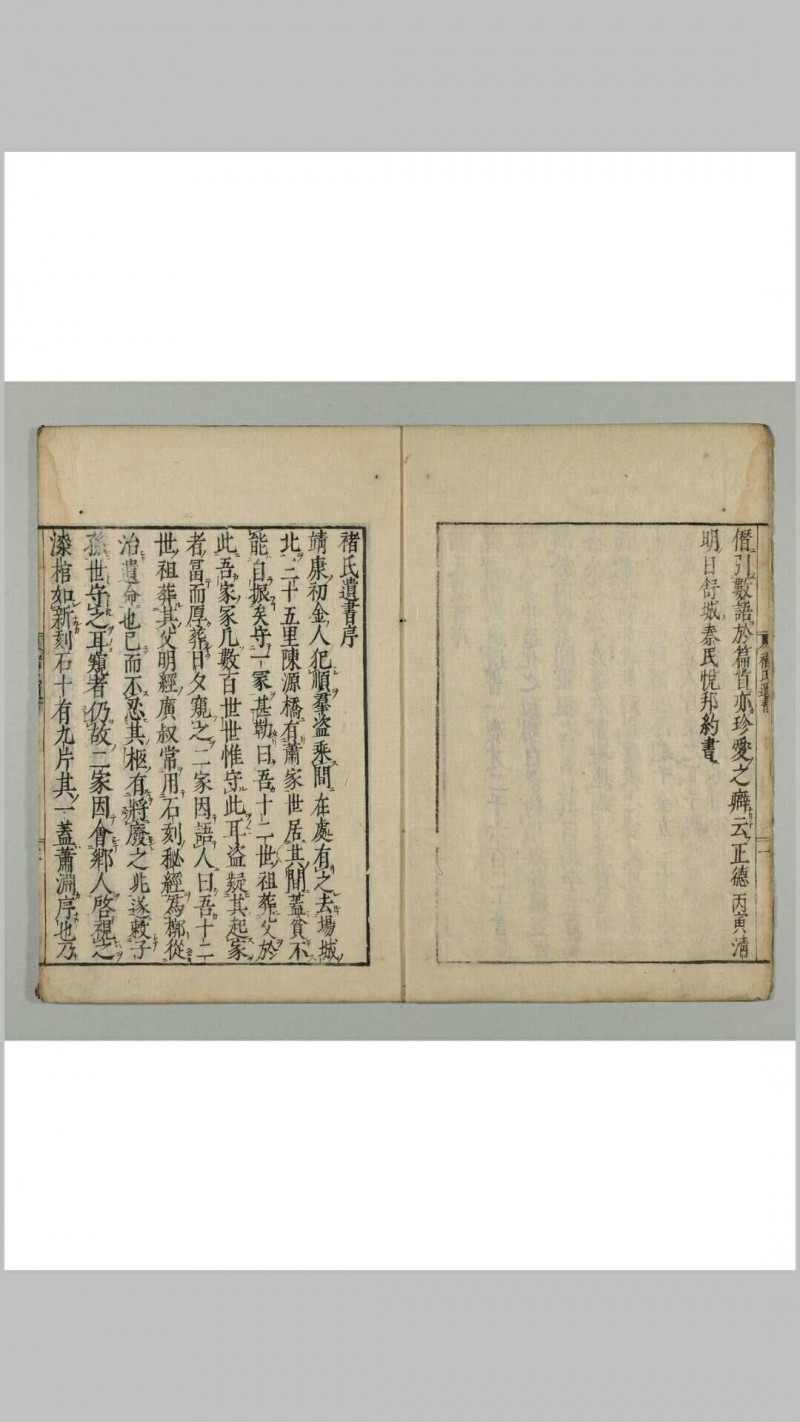 僭引數語於篇首亦珍愛之癖云正德丙寅清
明日舒城秦民悅邦約書
褚氏遺書序
靖康初金人犯順羣盜乘間在處有之去場城
北二十五里陳源橋有蕭家世居其間蓋貧不
能自振矣守一冢甚勤曰吾十二世祖葬父於
此吾家冢凡數百世世惟守此耳盜疑其起家
者冨而厚葬日夕窺之二家因語人曰吾十二
世祖葬其父明經廣叔常用石刻秘經爲槨從
治遺命也已而不忍其柩有將廢之兆遂敕子
孫世守之耳窺者仍故二家因會鄉人啓視之
漆棺如新刻石十有九片其一蓋蕭淵序也乃